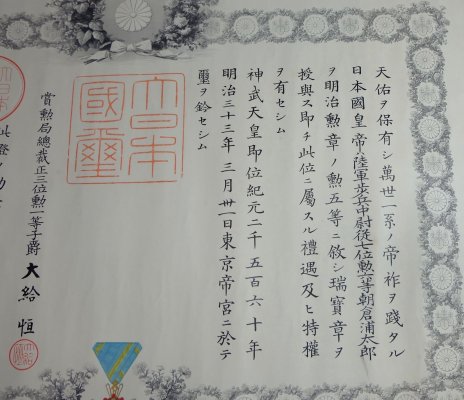 天佑ヲ保有シ萬世一系ノ帝祚ヲ踐タル
日本國皇帝ハ陸軍歩兵中尉從七位勲六等朝倉浦太郎
ヲ明治勲章ノ勲五等ニ敘シ瑞寶章ヲ
授與ス即チ此位ニ屬スル禮遇及ヒ特權
ヲ有セシム
神武天皇即位紀元二千五百六十年
明治三十三年三月卅一日東京帝宮ニ於テ
璽ヲ鈐セシム
大日本
國璽
賞勲局總裁正三位勲一等子爵大給恒